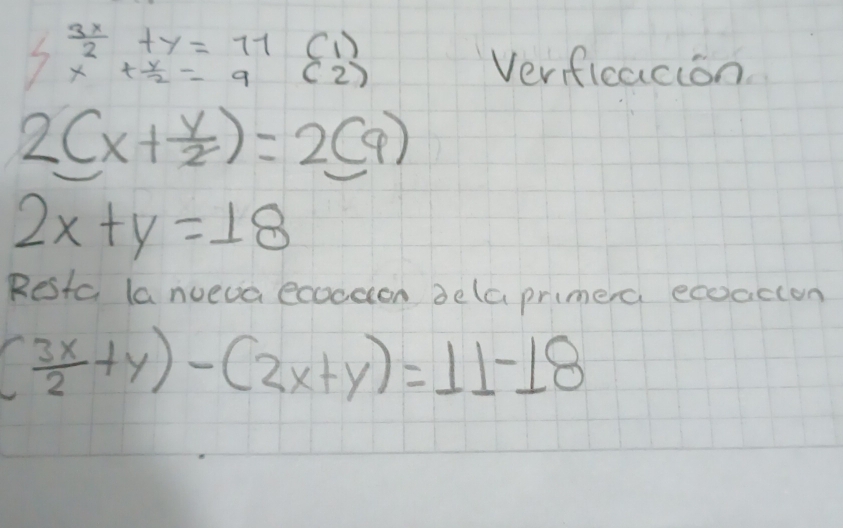 3x/2 + y = 11 (1)
x + y/2 = 9 (2)
Verificación
2(x + y/2) = 2(9)
2x + y = 18
Resta la nueva ecuación de la primera ecuación
(3x/2 + y) - (2x + y) = 11 - 18